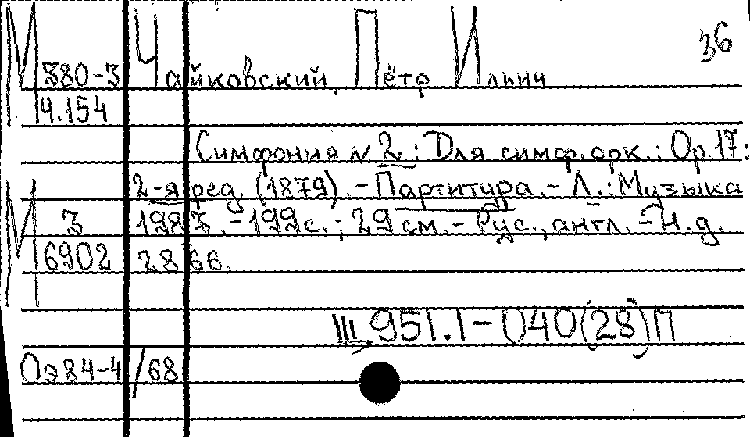 36
М 880-3 Чайковский, Пётр Ильич
Ч.154
Симфония № 2 : Для симф. орк. : Op. 17 :
2-я ред. (1879). - Партитура. - Л. : Музыка
М 3 1983. - 199 с. ; 29 см. - Рус., англ. - Н.д.
6902 2866.
Ш 951.1-040(28)П
Оэ84-4/68